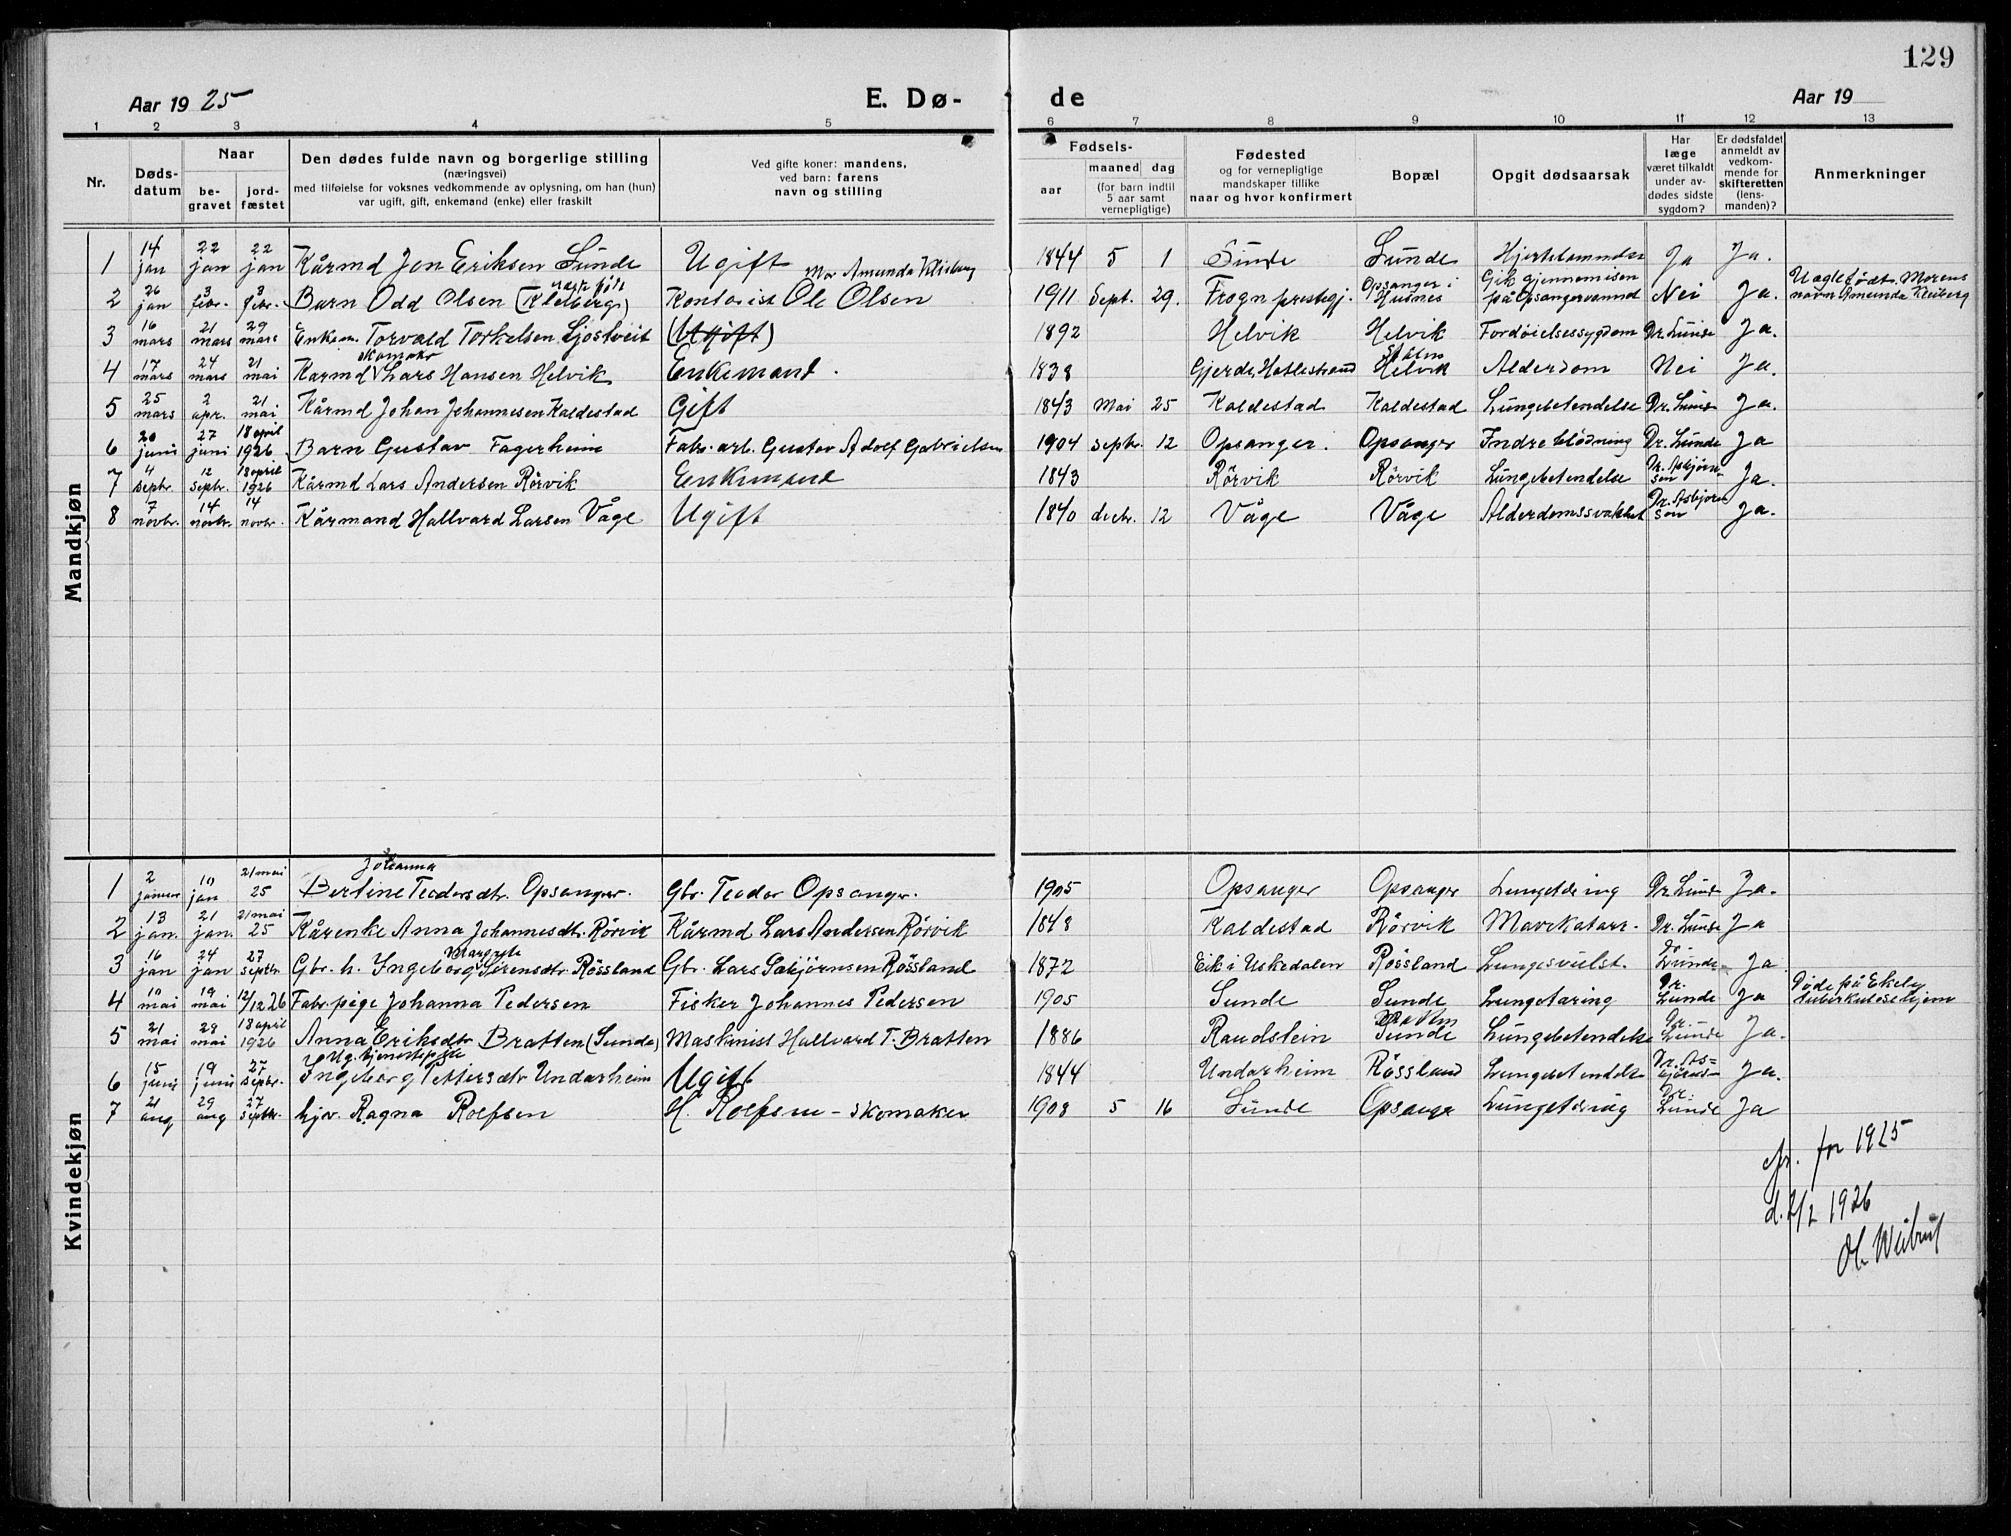 129
Aar 19 25 E. Dø- de Aar 19
1 2 3 4 5 6 7 8 9 10 11 12 13
Nr. Døds-datum Naar be-gravet jord-fæstet Den dødes fulde navn og borgerlige stilling (næringsvei) med tilføielse for voksnes vedkommende av oplysning, om han (hun) var ugift, gift, enkemand (enke) eller fraskilt Ved gifte koner: mandens, ved barn: farens navn og stilling Fødsels- aar maaned dag (for barn indtil 5 aar samt vernepligtige) Fødested og for vernepligtige mandskaper tillike naar og hvor konfirmert Bopæl Opgit dødsaarsak Har læge været tilkaldt under av-dødes sidste sygdom? Er dødsfaldet anmeldt av vedkom-mende for skifteretten (lens-manden)? Anmerkninger
Mandkjøn
1 14 jan 22 jan 22 jan Kårmd Jon Eriksen Sunde Ugift 1844 5 1 Sunde Sunde Ja Ja.
2 26 jan 3 febr. 3 febr. Barn Odd Olsen (Kleiberg) Kontorist Ole Olsen Mor Amunda Kleiberg 1911 Sept. 29. Frogn prestegj. Opsanger i Husnes Gik gjennem isen på Opsangervannd Nei Ja. Uægte født. Morens navn Amunda Kleiberg
3 16 mars 21 mars 29 mars Enkem. Torvald Torkelsen Ljostveit (Ugift) 1892 Helvik Helvik Fordøielsessygdom Dr. Lunde Ja.
4 17 mars 24 mars 21 mai Karmd Skomaker Lars Hansen Helvik Enkemand. 1838 Gjerde, Hatlestrand Helvik Alderdom Nei Ja.
5 25 mars 2 apr. 21 mai Kårmd Johan Johannesen Kaldestad Gift 1843 Mai 25 Kaldestad Kaldestad Lungebetendelse Dr. Lunde Ja.
6 20 juni 27 juni 18 april 1926 Barn Gustav Fagerheim Fabr. arb. Gustav Adolf Gabrielsen 1904 septbr. 12 Opsanger. Opsanger Indre blødning Dr. Lunde Ja
7 4 septbr. 12 septbr. 18 april 1926 Kårmd Lars Andersen Rörvik Enkemand 1843 Rörvik Rörvik Lungebetendelse Dr. Asbjörnsen Ja.
8 7 novbr. 14 novbr. 14 novbr. Kårmand Hallvard Larsen Våge Ugift 1840 decbr. 12 Våge Våge Alderdomssvakhet Dr. Asbjörnsen Ja.
Kvindekjøn
1 2 januar 10 jan 21 mai 25 Johanna Bertine Teodorsdtr. Opsanger. Gbr. Teodor Opsanger. 1905 Opsanger Opsanger Lungetæring Dr. Lunde Ja.
2 13 jan. 21 jan. 21 mai 25 Kårenke Anna Johannesdtr. Rörvik Kårmd Lars Andersen Rörvik 1848 Kaldestad Rörvik Mavekatarr. Dr. Lunde Ja
3 16 jan 24 jan 27 septbr. Gbr. h. Ingeborg Margrete Sörensdtr Røssland Gbr. Lars Sæbjörnsen Røssland 1872 Eik i Uskedalen Røssland Lungesvulst. Dr Lunde Ja
4 10 mai 19 mai 12/12 26 Fabr. pige Johanna Pedersen Fisker Johannes Pedersen 1905 Sunde Sunde Lungetæring Dr. Lunde Ja Døde på Ekely tuberkulosehjem
5 21 mai 28 mai 18 april 1926 Anna Eriksdtr Bratten (Sunde) Maskinist Hallvard T. Bratten 1886 Raudstein Bratten Sunde Lungebetendelse Dr. Lunde Ja.
6 15 juni 19 juni 27 septbr. Ug. tjenestepike Ingeborg Pettersdtr Undarheim Ugift 1844 Undarheim Røssland Lungebetendelse Dr. Asbjörnsen Ja.
7 21 aug 29 aug 27 septbr. hjv. Ragna Rolfsen H. Rolfsen - skomaker 1908 5 16 Sunde Opsanger Lungetæring Dr. Lunde Ja
for 1925
1926